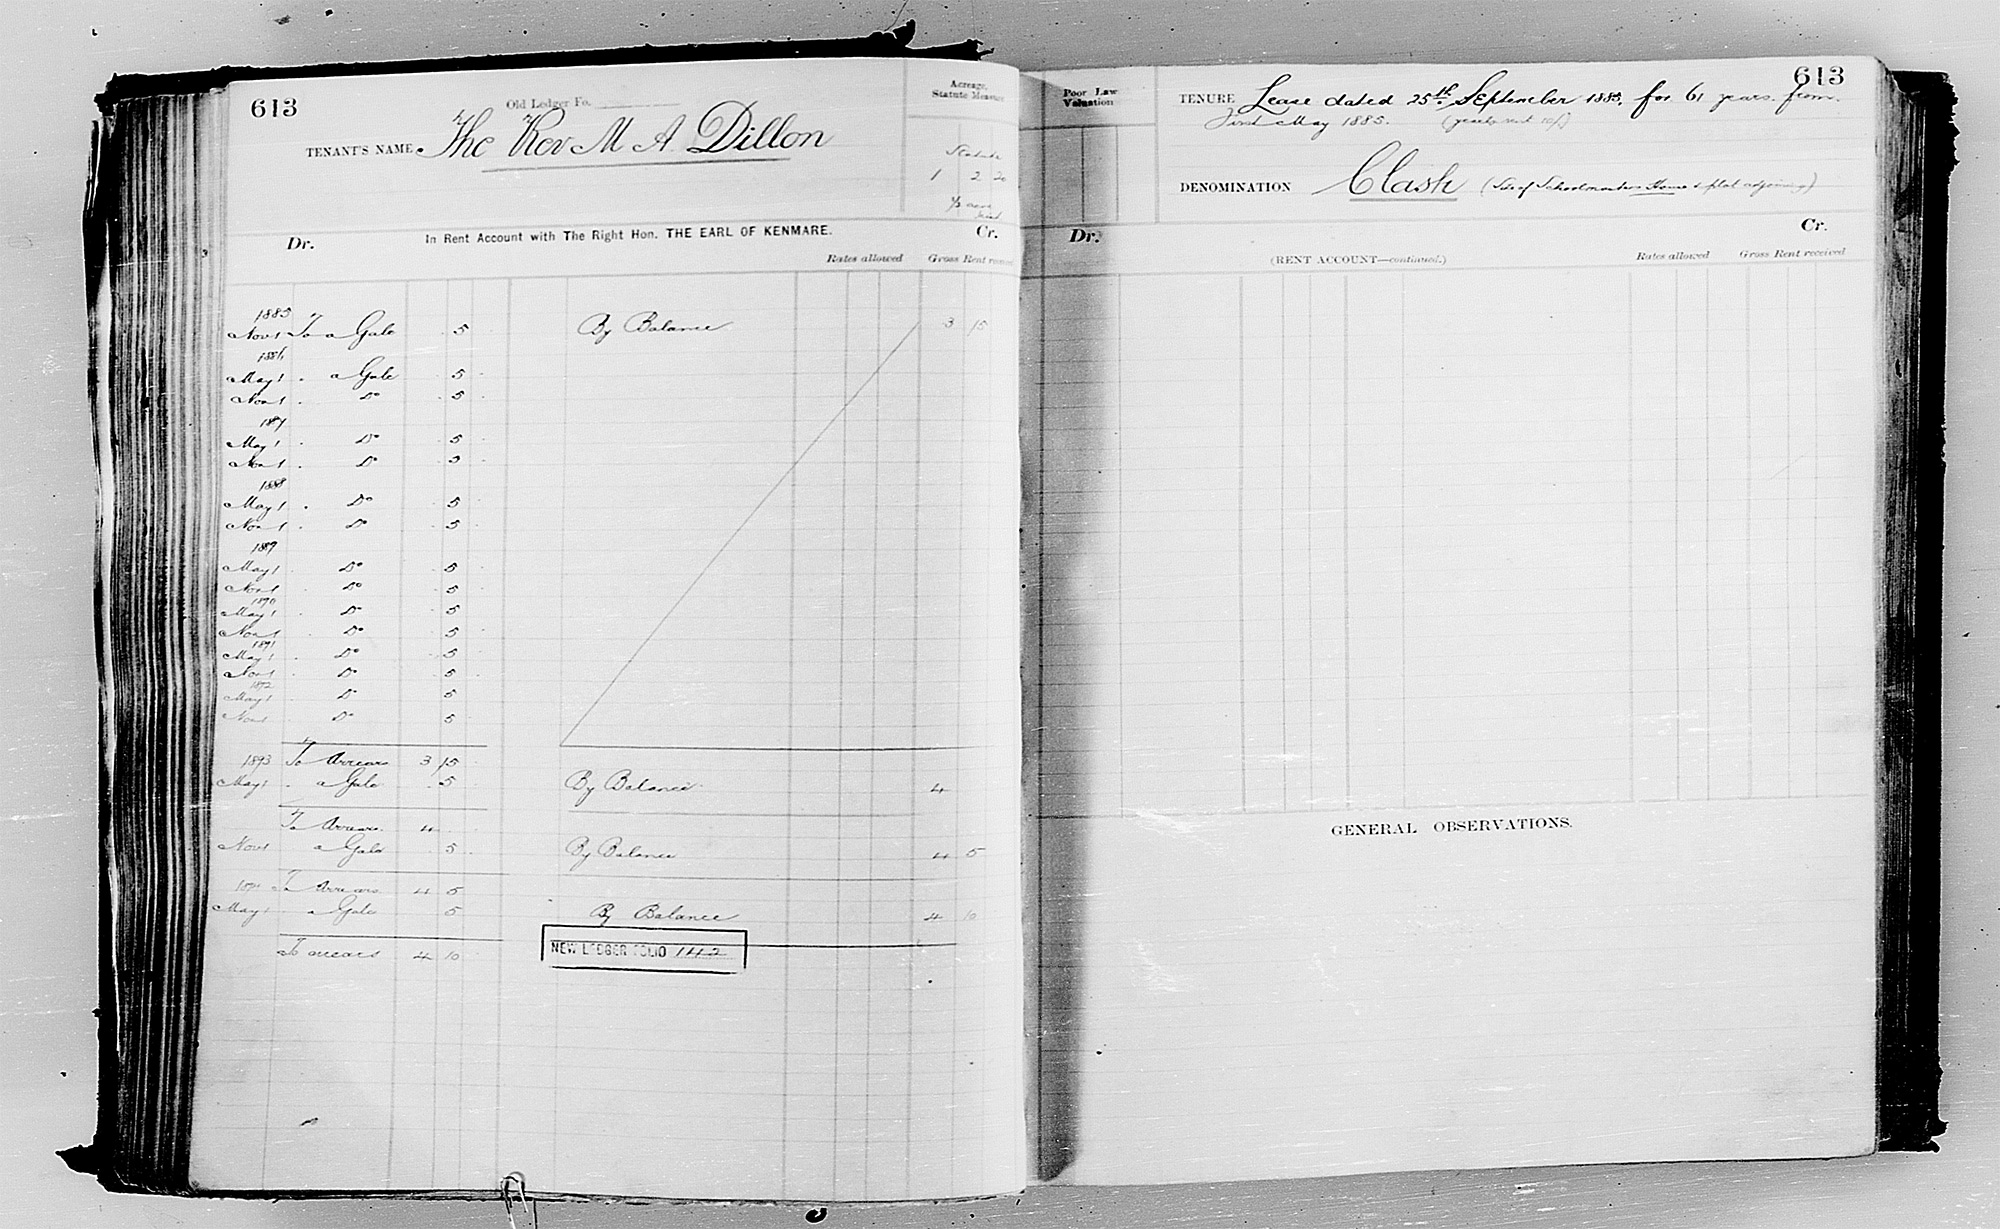 613
Old Ledger Fo.
TENANT'S NAME The Rev M A Dillon
Acreage,
Statute Measure
Statute
1 2 20
½ acre
In Rent Account with The Right Hon. THE EARL OF KENMARE.
Dr. Cr.
Rates allowed Gross Rent
1885
Nov 1 To a Gale 5 By Balance 3 15
1886
May 1 a Gale 5
Nov 1 Do 5
1887
May 1 Do 5
Nov 1 Do 5
1888
May 1 Do 5
Nov 1 Do 5
1889
May 1 Do 5
Nov 1 Do 5
1890
May 1 Do 5
Nov 1 Do 5
1891
May 1 Do 5
Nov 1 Do 5
1892
May 1 Do 5
Nov 1 Do 5
1893 To Arrears 3 15
May 1 a Gale 5 By Balance 4
To Arrears 4
Nov 1 a Gale 5 By Balance 4 5
To Arrears 4 5
May 1 a Gale 5 By Balance 4 10
To arrears 4 10
NEW LEDGER FOLIO 142
613
Poor Law
Valuation
TENURE Lease dated 25th September 1885, for 61 years from
first May 1885. (yearly rent 10/)
DENOMINATION Clash (Site of Schoolmasters House & plot adjoining)
Dr. Cr.
(RENT ACCOUNT—continued.) Rates allowed Gross Rent received
GENERAL OBSERVATIONS.